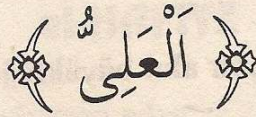 اَلْعَلِىُّ